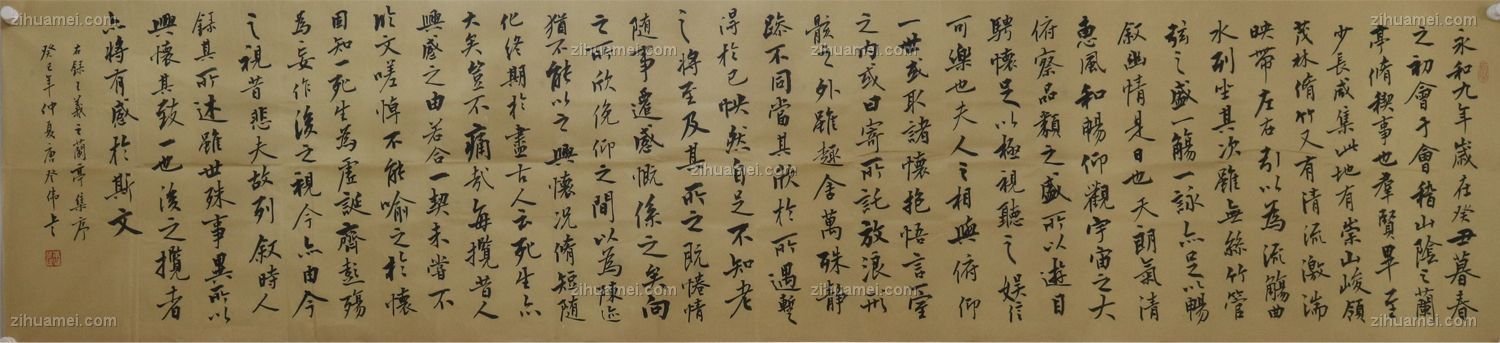 永和九年歲在癸丑暮春
之初會于會稽山陰之蘭
亭脩稧事也羣賢畢至
少長咸集此地有崇山峻領
茂林脩竹又有清流激湍
映帶左右引以為流觴曲
水列坐其次雖無絲竹管
弦之盛一觴一詠亦足以暢
叙幽情是日也天朗氣清
惠風和暢仰觀宇宙之大
俯察品類之盛所以遊目
騁懷足以極視聽之娛信
可樂也夫人之相與俯仰
一世或取諸懷抱悟言室
之內或因寄所託放浪形
骸之外雖趣舍萬殊靜
躁不同當其欣於所遇暫
得於己怏然自足不知老
之將至及其所之既惓情
隨事遷感慨係之矣向
之所欣俛仰之間以為陳迹
猶不能以之興懷況脩短隨
化終期於盡古人云死生亦
大矣豈不痛哉每攬昔人
興感之由若合一契未嘗不
臨文嗟悼不能喻之於懷
固知一死生為虛誕齊彭殤
為妄作後之視今亦由今
之視昔悲夫故列叙時人
錄其所述雖世殊事異所以
興懷其致一也後之攬者
亦將有感於斯文
右錄王羲之蘭亭集序
癸巳年仲夏
zihuamei.com
zihuamei.com
zihuamei.com
zihuamei.com
zihuamei.com
zihuamei.com
zihuamei.com
zihuamei.com
zihuamei.com
zihuamei.com
zihuamei.com
zihuamei.com